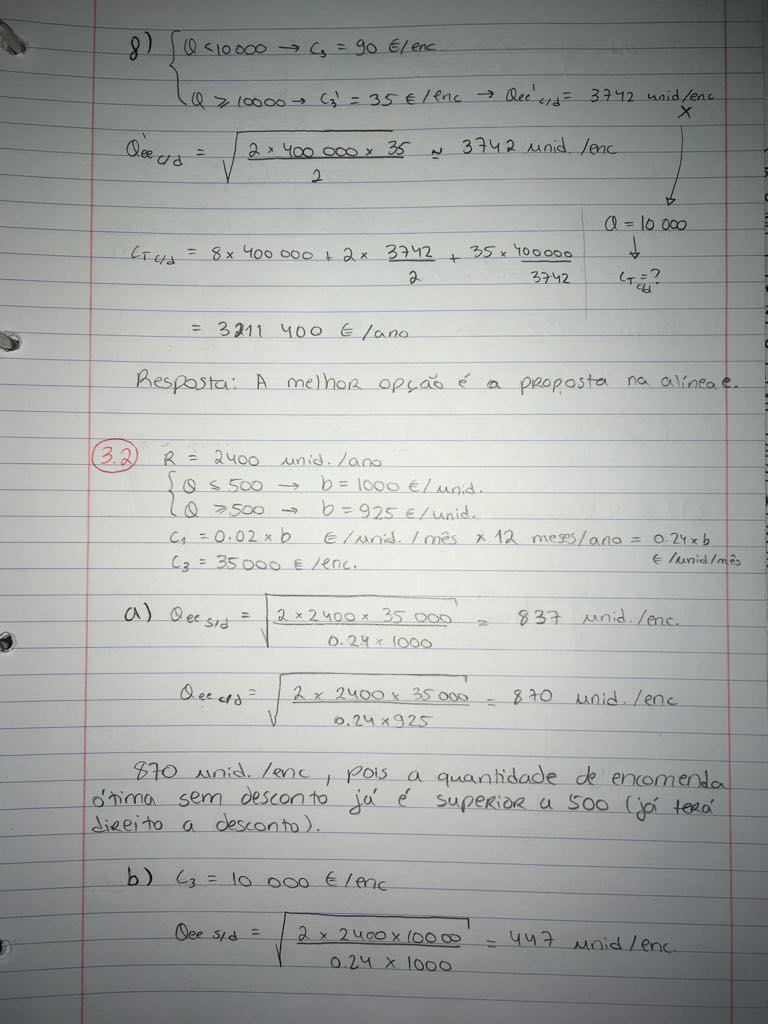 g) { Q < 10 000 → C₃ = 90 €/enc
Q ≥ 10000 → C₃' = 35 €/enc → Qee' c/d = 3742 unid/enc
X
Q'ee c/d = √(2 × 400 000 × 35 / 2) ≈ 3742 unid./enc
Q = 10 000
↓
CT c/d = ?
CT c/d = 8 × 400 000 + 2 × 3742/2 + 35 × 400000/3742
= 3211 400 € /ano
Resposta: A melhor opção é a proposta na alínea e.
3.2 R = 2400 unid./ano
{ Q ≤ 500 → b = 1000 €/unid.
Q ≥ 500 → b = 925 €/unid.
C₁ = 0.02 × b €/unid./mês × 12 meses/ano = 0.24 × b
€/unid/mês
C₃ = 35 000 €/enc.
a) Qee s/d = √(2 × 2400 × 35 000 / 0.24 × 1000) = 837 unid./enc.
Qee c/d = √(2 × 2400 × 35 000 / 0.24 × 925) = 870 unid./enc
870 unid./enc, pois a quantidade de encomenda
ótima sem desconto já é superior a 500 (já terá
direito a desconto).
b) C₃ = 10 000 €/enc
Qee s/d = √(2 × 2400 × 10000 / 0.24 × 1000) = 447 unid/enc.